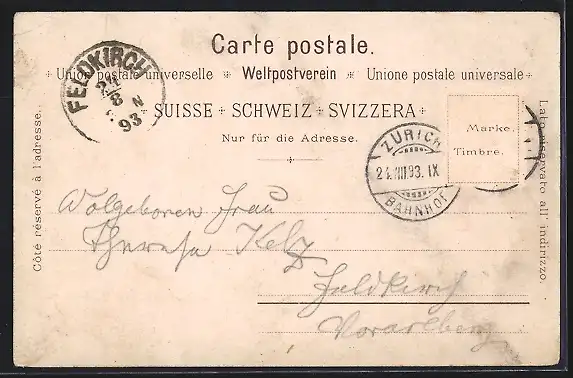 Carte postale.
Union postale universelle * Weltpostverein * Unione postale universale
SUISSE + SCHWEIZ + SVIZZERA
Nur für die Adresse.
Côté réservé à l'adresse.
Lato riservato all' indirizzo.
Marke.
Timbre.
FELDKIRCH
24
8
N
93
ZÜRICH
24.VIII.93. IX
BAHNHOF
Wolgeboren Frau
Theresa Kelz
Feldkirch
Vorarlberg